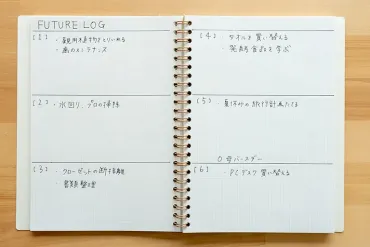 FUTURE LOG
[1]
・観用植物をとりいれる
・歯のメンテナンス
[2]
・水回り、プロの掃除
[3]
・クローゼットの断捨離
・書類整理
[4]
・タオルを買い替える
・発酵食品を学ぶ
[5]
・夏休みの旅行計画たてる
○母バースデー
[6]
・PCデスク買い替える